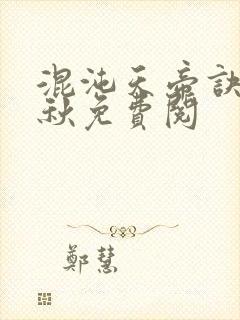 混沌天帝訣
秋免費閱
鄭慧